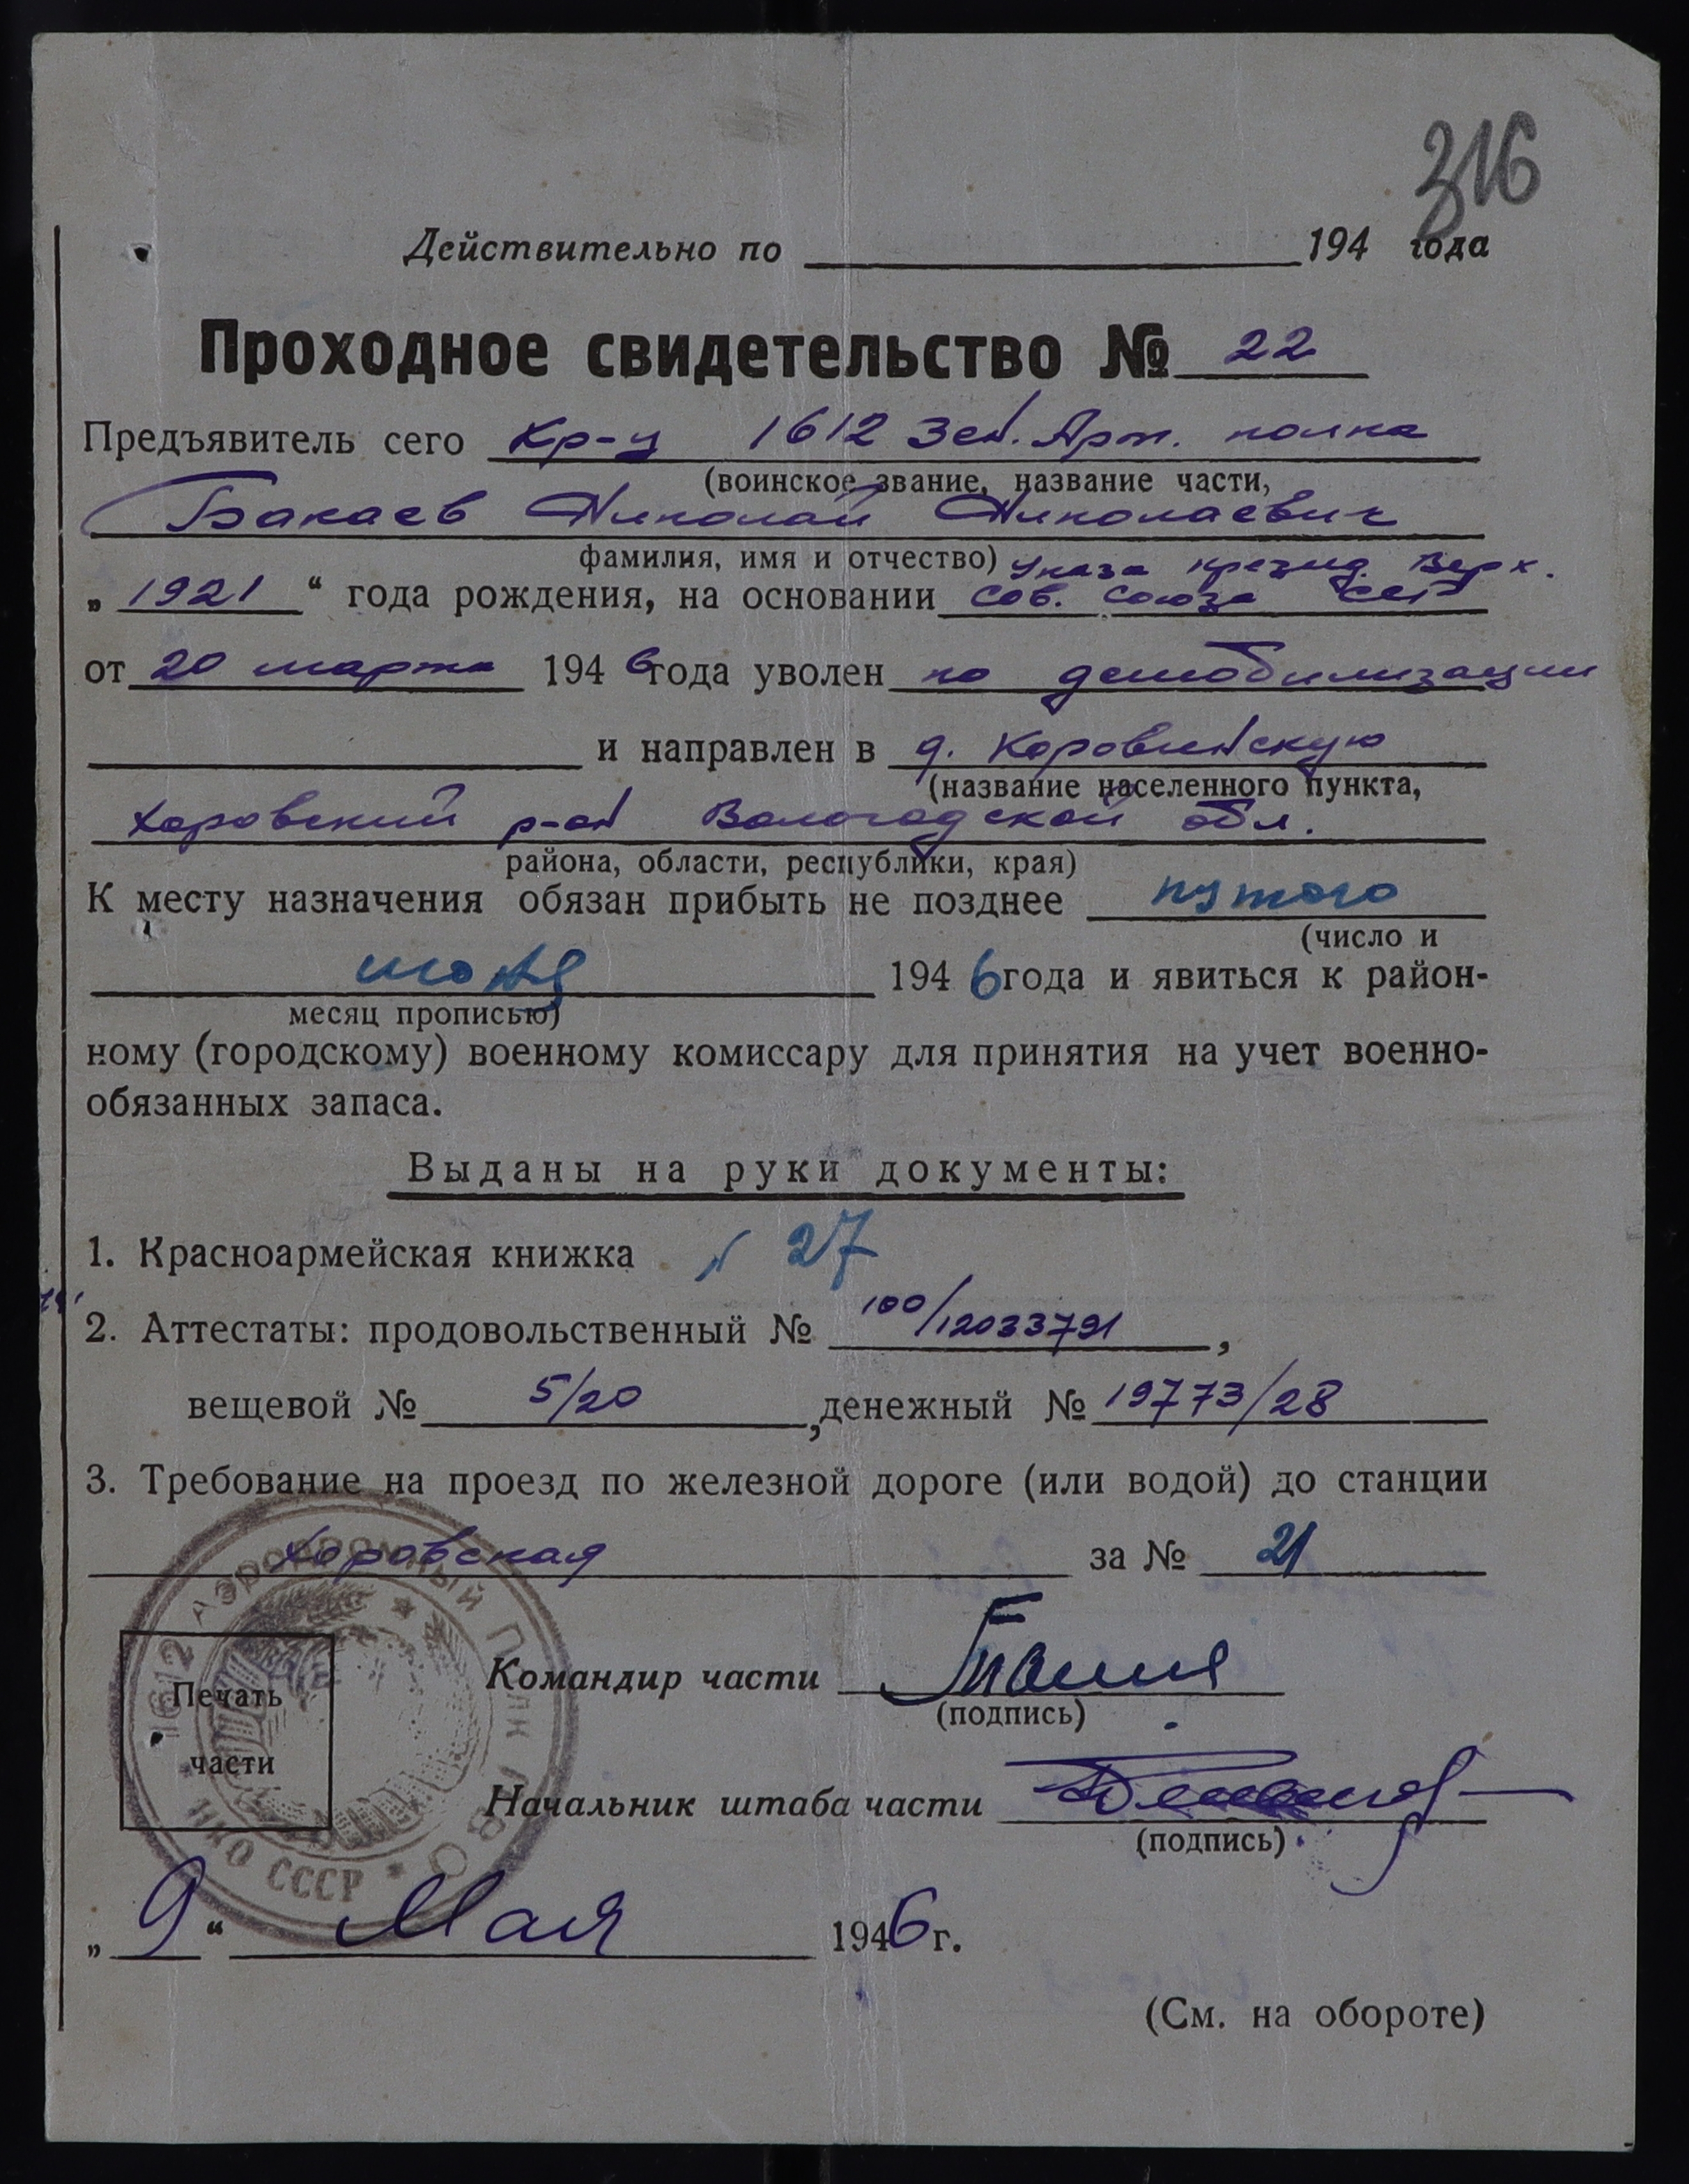 316
Действительно по 194 года
Проходное свидетельство № 22
Предъявитель сего Кр-ц 1612 Зен. Арт. полка
(воинское звание, название части,
Бакаев Николай Николаевич
фамилия, имя и отчество) Указа презид. Верх.
„ 1921 “ года рождения, на основании Сов. Союза ССР
от 20 марта 1946 года уволен по демобилизации
и направлен в д. Коровинскую
(название населенного пункта,
Харовский р-он Вологодской обл.
района, области, республики, края)
К месту назначения обязан прибыть не позднее пятого
(число и
июня 1946 года и явиться к район-
месяц прописью)
ному (городскому) военному комиссару для принятия на учет военно-
обязанных запаса.
Выданы на руки документы:
1. Красноармейская книжка № 27
2. Аттестаты: продовольственный № 100/12033791,
вещевой № 5/20, денежный № 19773/28
3. Требование на проезд по железной дороге (или водой) до станции
Харовская за № 21
1612 Аэродромный Полк ПВО
НКО СССР
Печать
части
Командир части
(подпись)
Начальник штаба части
(подпись)
„ 9 “ Мая 1946 г.
(См. на обороте)